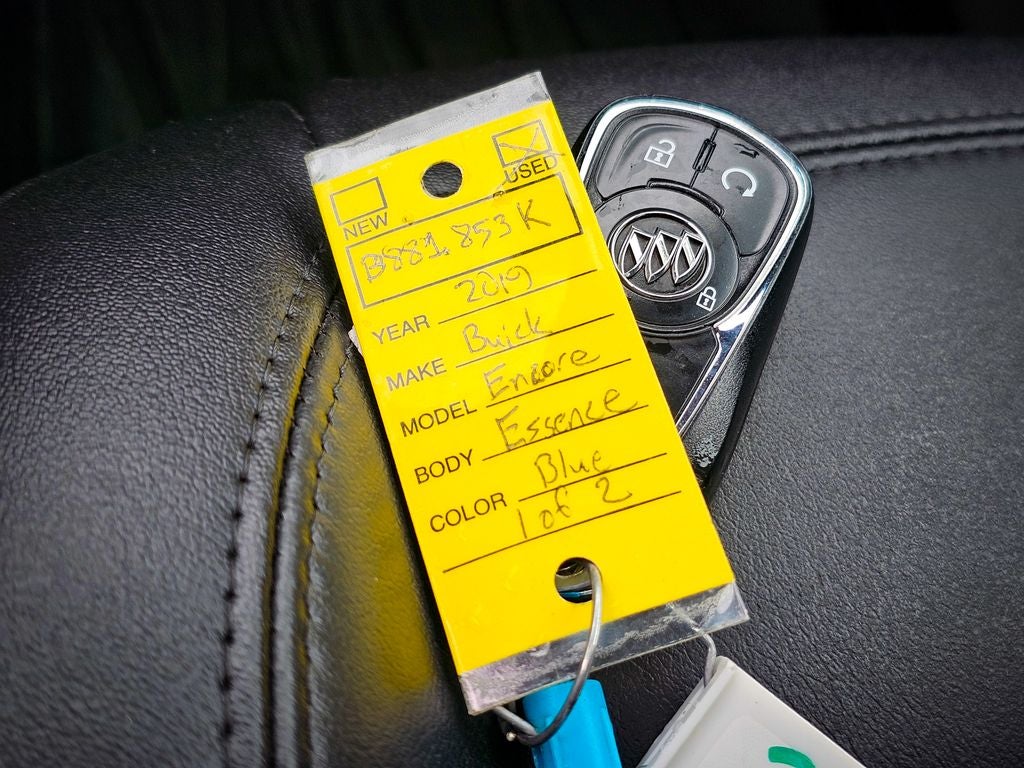 NEW
USED
B881853K
YEAR 2019
MAKE Buick
MODEL Encore
BODY Essence
COLOR Blue
1 of 2